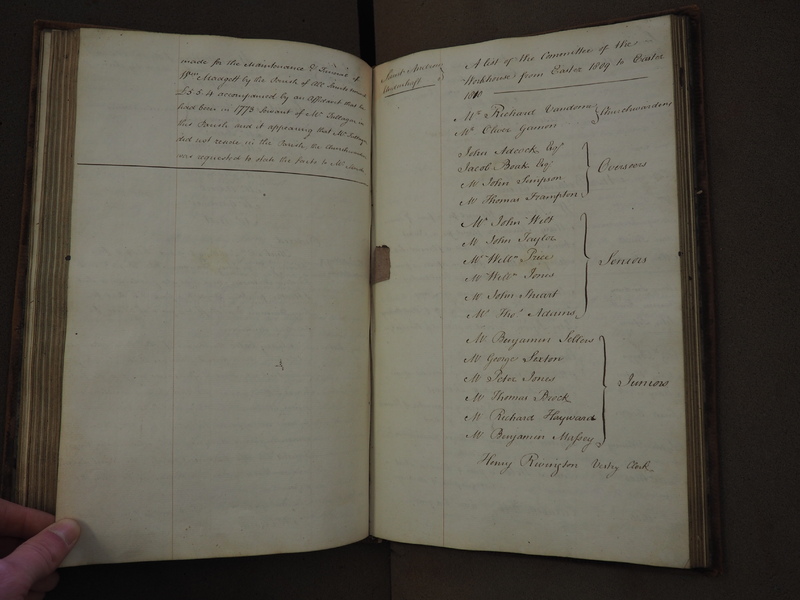 made for the Maintenance & Funeral of
Wm Madgett by the Parish of All Saints
£5.5.4 accompanied by an Affidavit that he
had been in 1773 Servant of Mr
this Parish and it appearing that Mr
did not reside in this Parish, the Churchwardens
were requested to state the facts to Mr
Saint Andrew
Undershaft
A list of the Committee of the
Workhouse from Easter 1809 to Easter
1810
Mr Richard Vandome
Mr Oliver Gunnon
Churchwardens
John Adcock Esqr
Jacob Boak Esqr
Mr John Simpson
Mr Thomas Frampton
Overseers
Mr John Witt
Mr John Taylor
Mr Willm Price
Mr Willm Jones
Mr John Stuart
Mr Thos Adams
Seniors
Mr Benjamin Sellers
Mr George Sexton
Mr Peter Jones
Mr Thomas Brock
Mr Richard Hayward
Mr Benjamin Massey
Juniors
Henry Rivington Vestry Clerk